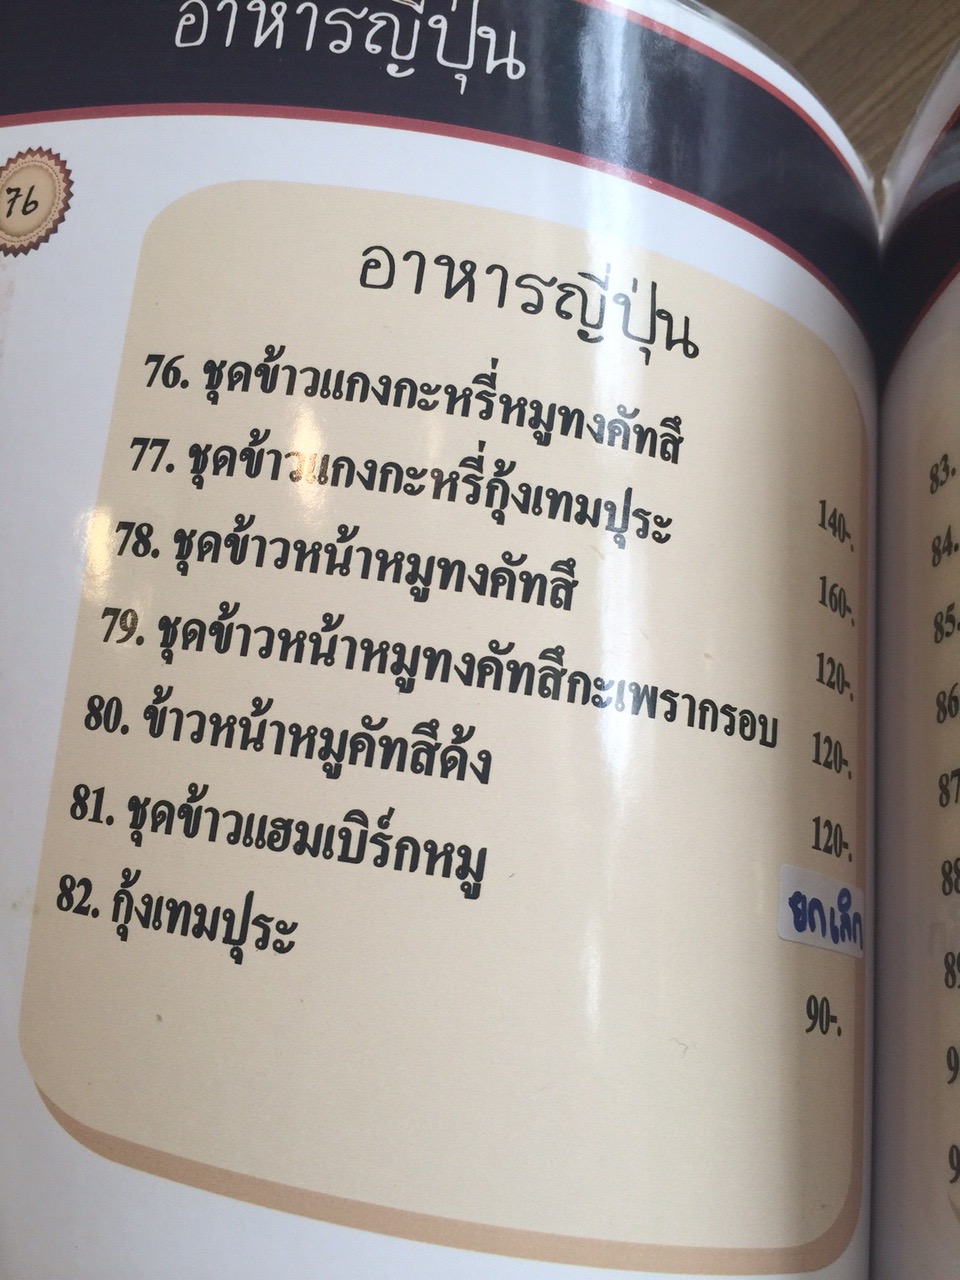 อาหารญี่ปุ่น
76
อาหารญี่ปุ่น
76. ชุดข้าวแกงกะหรี่หมูทงคัทสึ 140-.
77. ชุดข้าวแกงกะหรี่กุ้งเทมปุระ 160-.
78. ชุดข้าวหน้าหมูทงคัทสึ 120-.
79. ชุดข้าวหน้าหมูทงคัทสึกะเพรากรอบ 120-.
80. ข้าวหน้าหมูคัทสึด้ง 120-.
81. ชุดข้าวแฮมเบิร์กหมู ยกเลิก
82. กุ้งเทมปุระ 90-.
83.
84.
85.
86
87
88